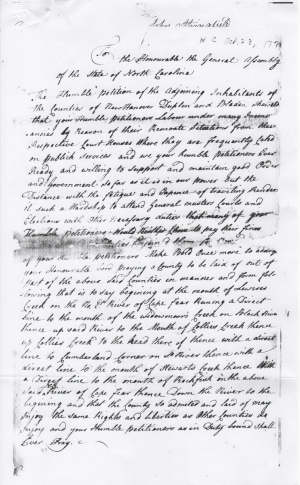 To the Honourable the General Assembly
of the State of North Carolina
The Humble petition of the Adjoining Inhabitants of
the Counties of New Hanover Duplin and Bladen Sheweth
that your Humble Petitioners Labour under many
by Reason of their Remoate Situations from their
Respective Court Houses Where they are frequently Called
on publick Services and we your humble Petitioners Ever
Ready and willing to Support and maintain good Order
and Government so far as it is in our power But the
Distance with the fatigue and Expence of travelling Render
it Such a hardship to attend general musters Courts and
Elections with other Necessary duties that many of your
Humble Petitioners Would Rather pay their fines
of your Humble Petitioners Make Bold once more to
your Honourable praying a County to be laid of out of
part of the above Said Counties in manner and form fol-
lowing that is to Say begining at the mouth of
Creek on the River of Cape fear Runing a Direct
line to the mouth of the Creek on Black River
thence up said River to the Mouth of Collies Creek thence
up Collies Creek to the head them of thence with a direct
line to Cumberland Corner on River thence with a
direct line to the mouth of Creek thence With
a Direct line to the mouth of Rockfish in the above
Said River of Cape fear thence Down the River to the
begining and that the County so admited and laid of may
Enjoy the Same Rights and liberties as other Counties do
Enjoy and your Humble Petitioners as in Duty bound shall
Ever Pray